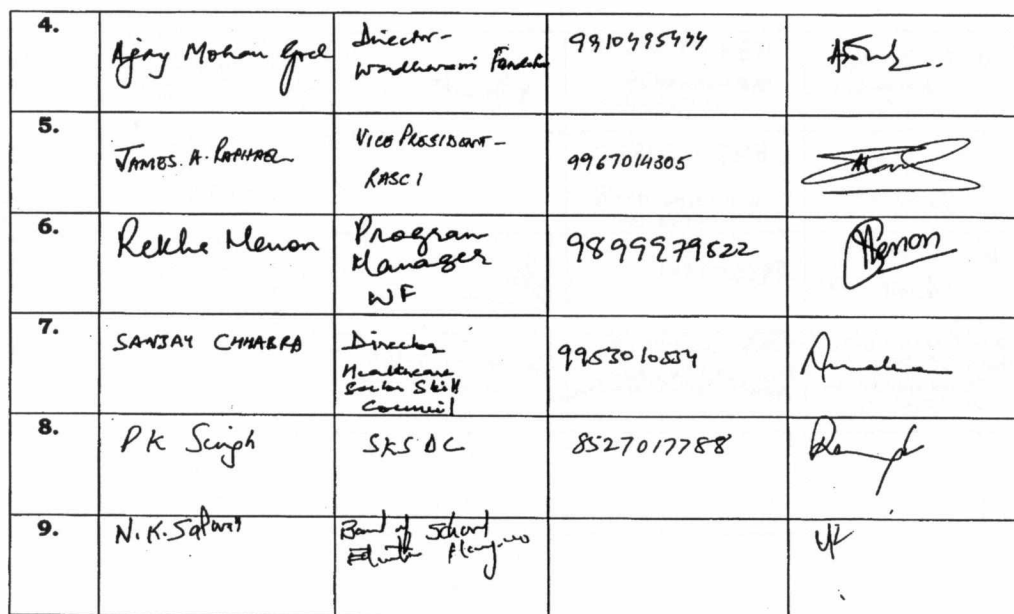 4.
Ajay Mohan Goel
Director-
Wadhwani Foundation
9910495444
5.
JAMES. A. RAPHAEL
VICE PRESIDENT -
RASCI
9967014305
6.
Rekha Menon
Program
Manager
WF
9899979522
Menon
7.
SANJAY CHHABRA
Director
Healthcare
Sector Skill
Council
9953010534
8.
PK Singh
SKSDC
8527017788
9.
N.K.
Board of School